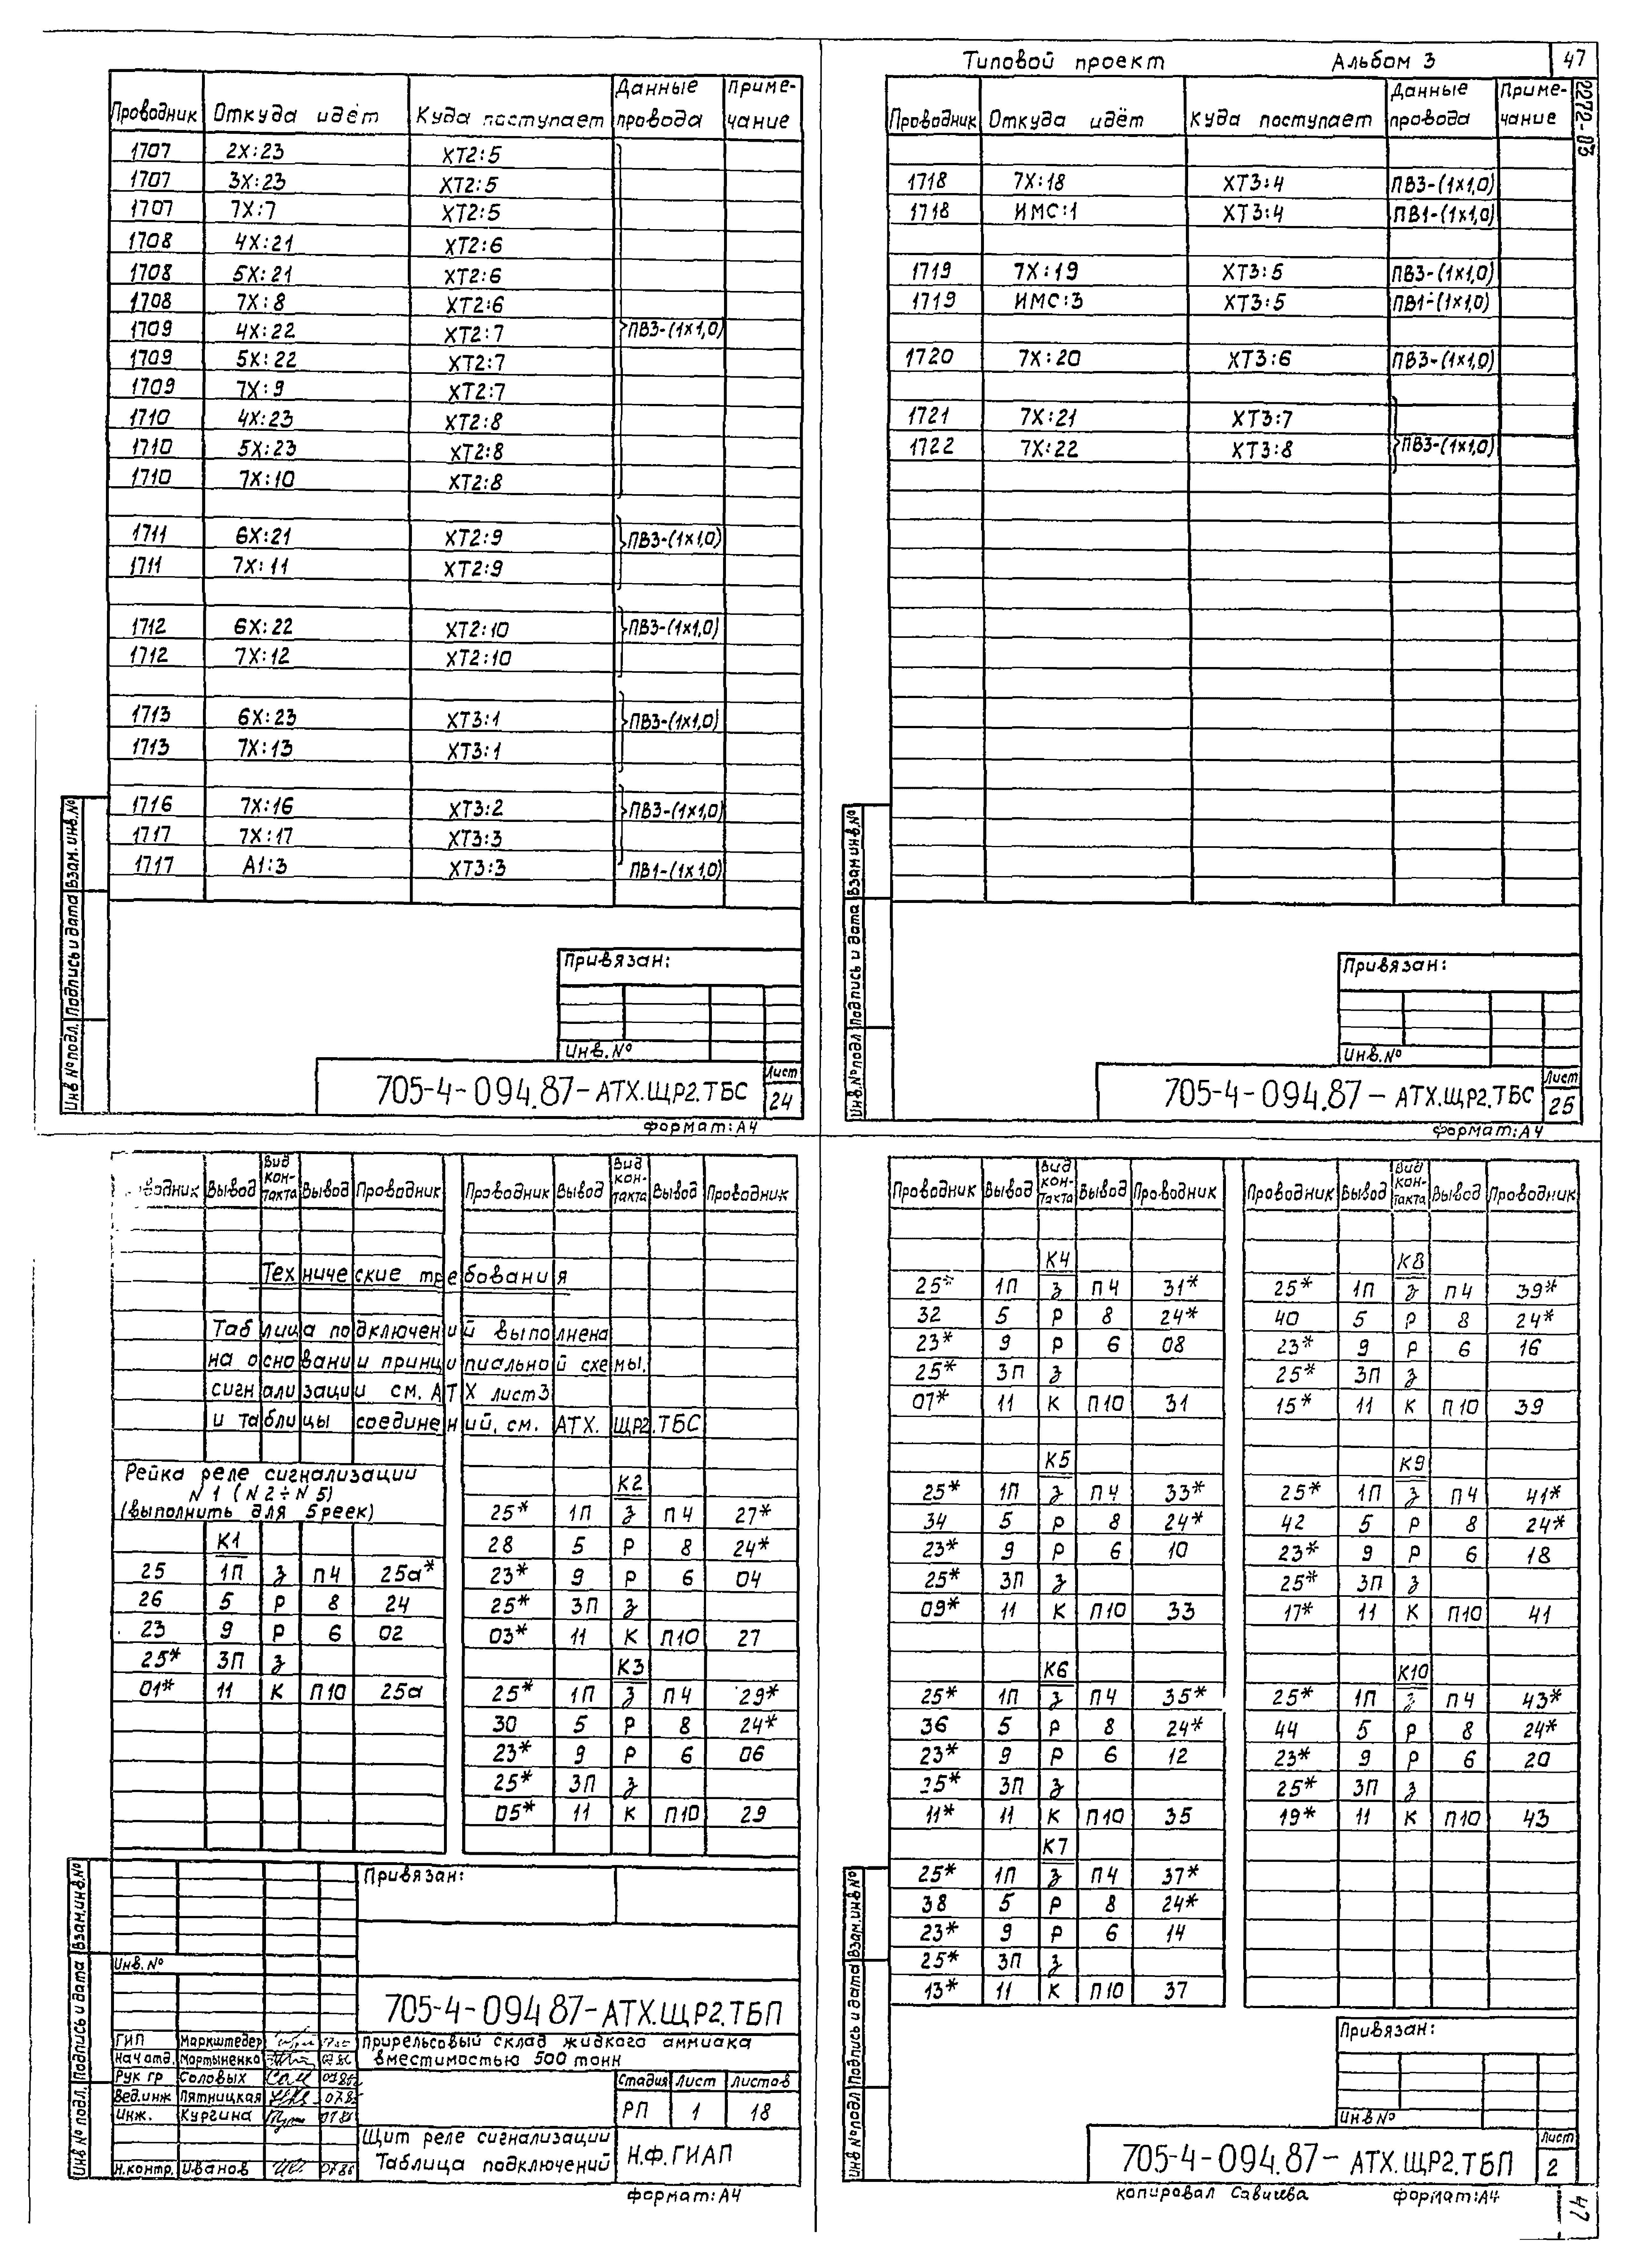 Типовой проект Альбом 3 47
2272-03
Проводник Откуда идёт Куда поступает Данные провода Примечание
1707 2X:23 XT2:5
1707 3X:23 XT2:5
1707 7X:7 XT2:5
1708 4X:21 XT2:6
1708 5X:21 XT2:6
1708 7X:8 XT2:6
1709 4X:22 XT2:7 ПВ3-(1х1,0)
1709 5X:22 XT2:7
1709 7X:9 XT2:7
1710 4X:23 XT2:8
1710 5X:23 XT2:8
1710 7X:10 XT2:8
1711 6X:21 XT2:9 ПВ3-(1х1,0)
1711 7X:11 XT2:9
1712 6X:22 XT2:10 ПВ3-(1х1,0)
1712 7X:12 XT2:10
1713 6X:23 XT3:1 ПВ3-(1х1,0)
1713 7X:13 XT3:1
1716 7X:16 XT3:2 ПВ3-(1х1,0)
1717 7X:17 XT3:3
1717 А1:3 XT3:3 ПВ1-(1х1,0)
Инв № подл. Подпись и дата Взам. инв. №
Привязан:
Инв. №
705-4-094.87-АТХ.ЩР2.ТБС
Лист
24
формат: А4
Проводник Откуда идёт Куда поступает Данные провода Примечание
1718 7X:18 XT3:4 ПВ3-(1х1,0)
1718 ИМС:1 XT3:4 ПВ1-(1х1,0)
1719 7X:19 XT3:5 ПВ3-(1х1,0)
1719 ИМС:3 XT3:5 ПВ1-(1х1,0)
1720 7X:20 XT3:6 ПВ3-(1х1,0)
1721 7X:21 XT3:7
1722 7X:22 XT3:8 ПВ3-(1х1,0)
Инв. № подл Подпись и дата Взам инв. №
Привязан:
Инв. №
705-4-094.87-АТХ.ЩР2.ТБС
Лист
25
формат: А4
Проводник Вывод Вид контакта Вывод Проводник
Технические требования
Таблица подключений выполнена
на основании принципиальной схемы.
сигнализации см. АТХ лист 3
и таблицы соединений, см. АТХ. ЩР2.ТБС
Рейка реле сигнализации
N 1 (N 2÷N 5)
(выполнить для 5 реек)
К1
25 1П з П4 25а*
26 5 Р 8 24
23 9 Р 6 02
25* 3П з
01* 11 К П10 25а
Проводник Вывод Вид контакта Вывод Проводник
К2
25* 1П з П4 27*
28 5 Р 8 24*
23* 9 Р 6 04
25* 3П з
03* 11 К П10 27
К3
25* 1П з П4 29*
30 5 Р 8 24*
23* 9 Р 6 06
25* 3П з
05* 11 К П10 29
Инв № подл. Подпись и дата Взам. инв. №
Привязан:
Инв. №
705-4-094 87-АТХ.ЩР2.ТБП
ГИП Маркштедер
Нач отд. Мартыненко
Рук гр Соловых
Вед. инж Пятницкая
Инж. Кургина
Н.контр. Иванов
Прирельсовый склад жидкого аммиака
вместимостью 500 тонн
Стадия Лист Листов
РП 1 18
Щит реле сигнализации
Таблица подключений
Н.Ф. ГИАП
формат: А4
Проводник Вывод Вид контакта Вывод Проводник
К4
25* 1П з П4 31*
32 5 Р 8 24*
23* 9 Р 6 08
25* 3П з
07* 11 К П10 31
К5
25* 1П з П4 33*
34 5 Р 8 24*
23* 9 Р 6 10
25* 3П з
09* 11 К П10 33
К6
25* 1П з П4 35*
36 5 Р 8 24*
23* 9 Р 6 12
25* 3П з
11* 11 К П10 35
К7
25* 1П з П4 37*
38 5 Р 8 24*
23* 9 Р 6 14
25* 3П з
13* 11 К П10 37
Проводник Вывод Вид контакта Вывод Проводник
К8
25* 1П з П4 39*
40 5 Р 8 24*
23* 9 Р 6 16
25* 3П з
15* 11 К П10 39
К9
25* 1П з П4 41*
42 5 Р 8 24*
23* 9 Р 6 18
25* 3П з
17* 11 К П10 41
К10
25* 1П з П4 43*
44 5 Р 8 24*
23* 9 Р 6 20
25* 3П з
19* 11 К П10 43
Инв № подл Подпись и дата Взам. инв №
Привязан:
Инв №
705-4-094.87-АТХ.ЩР2.ТБП
Лист
2
копировал Савичева формат: А4
47